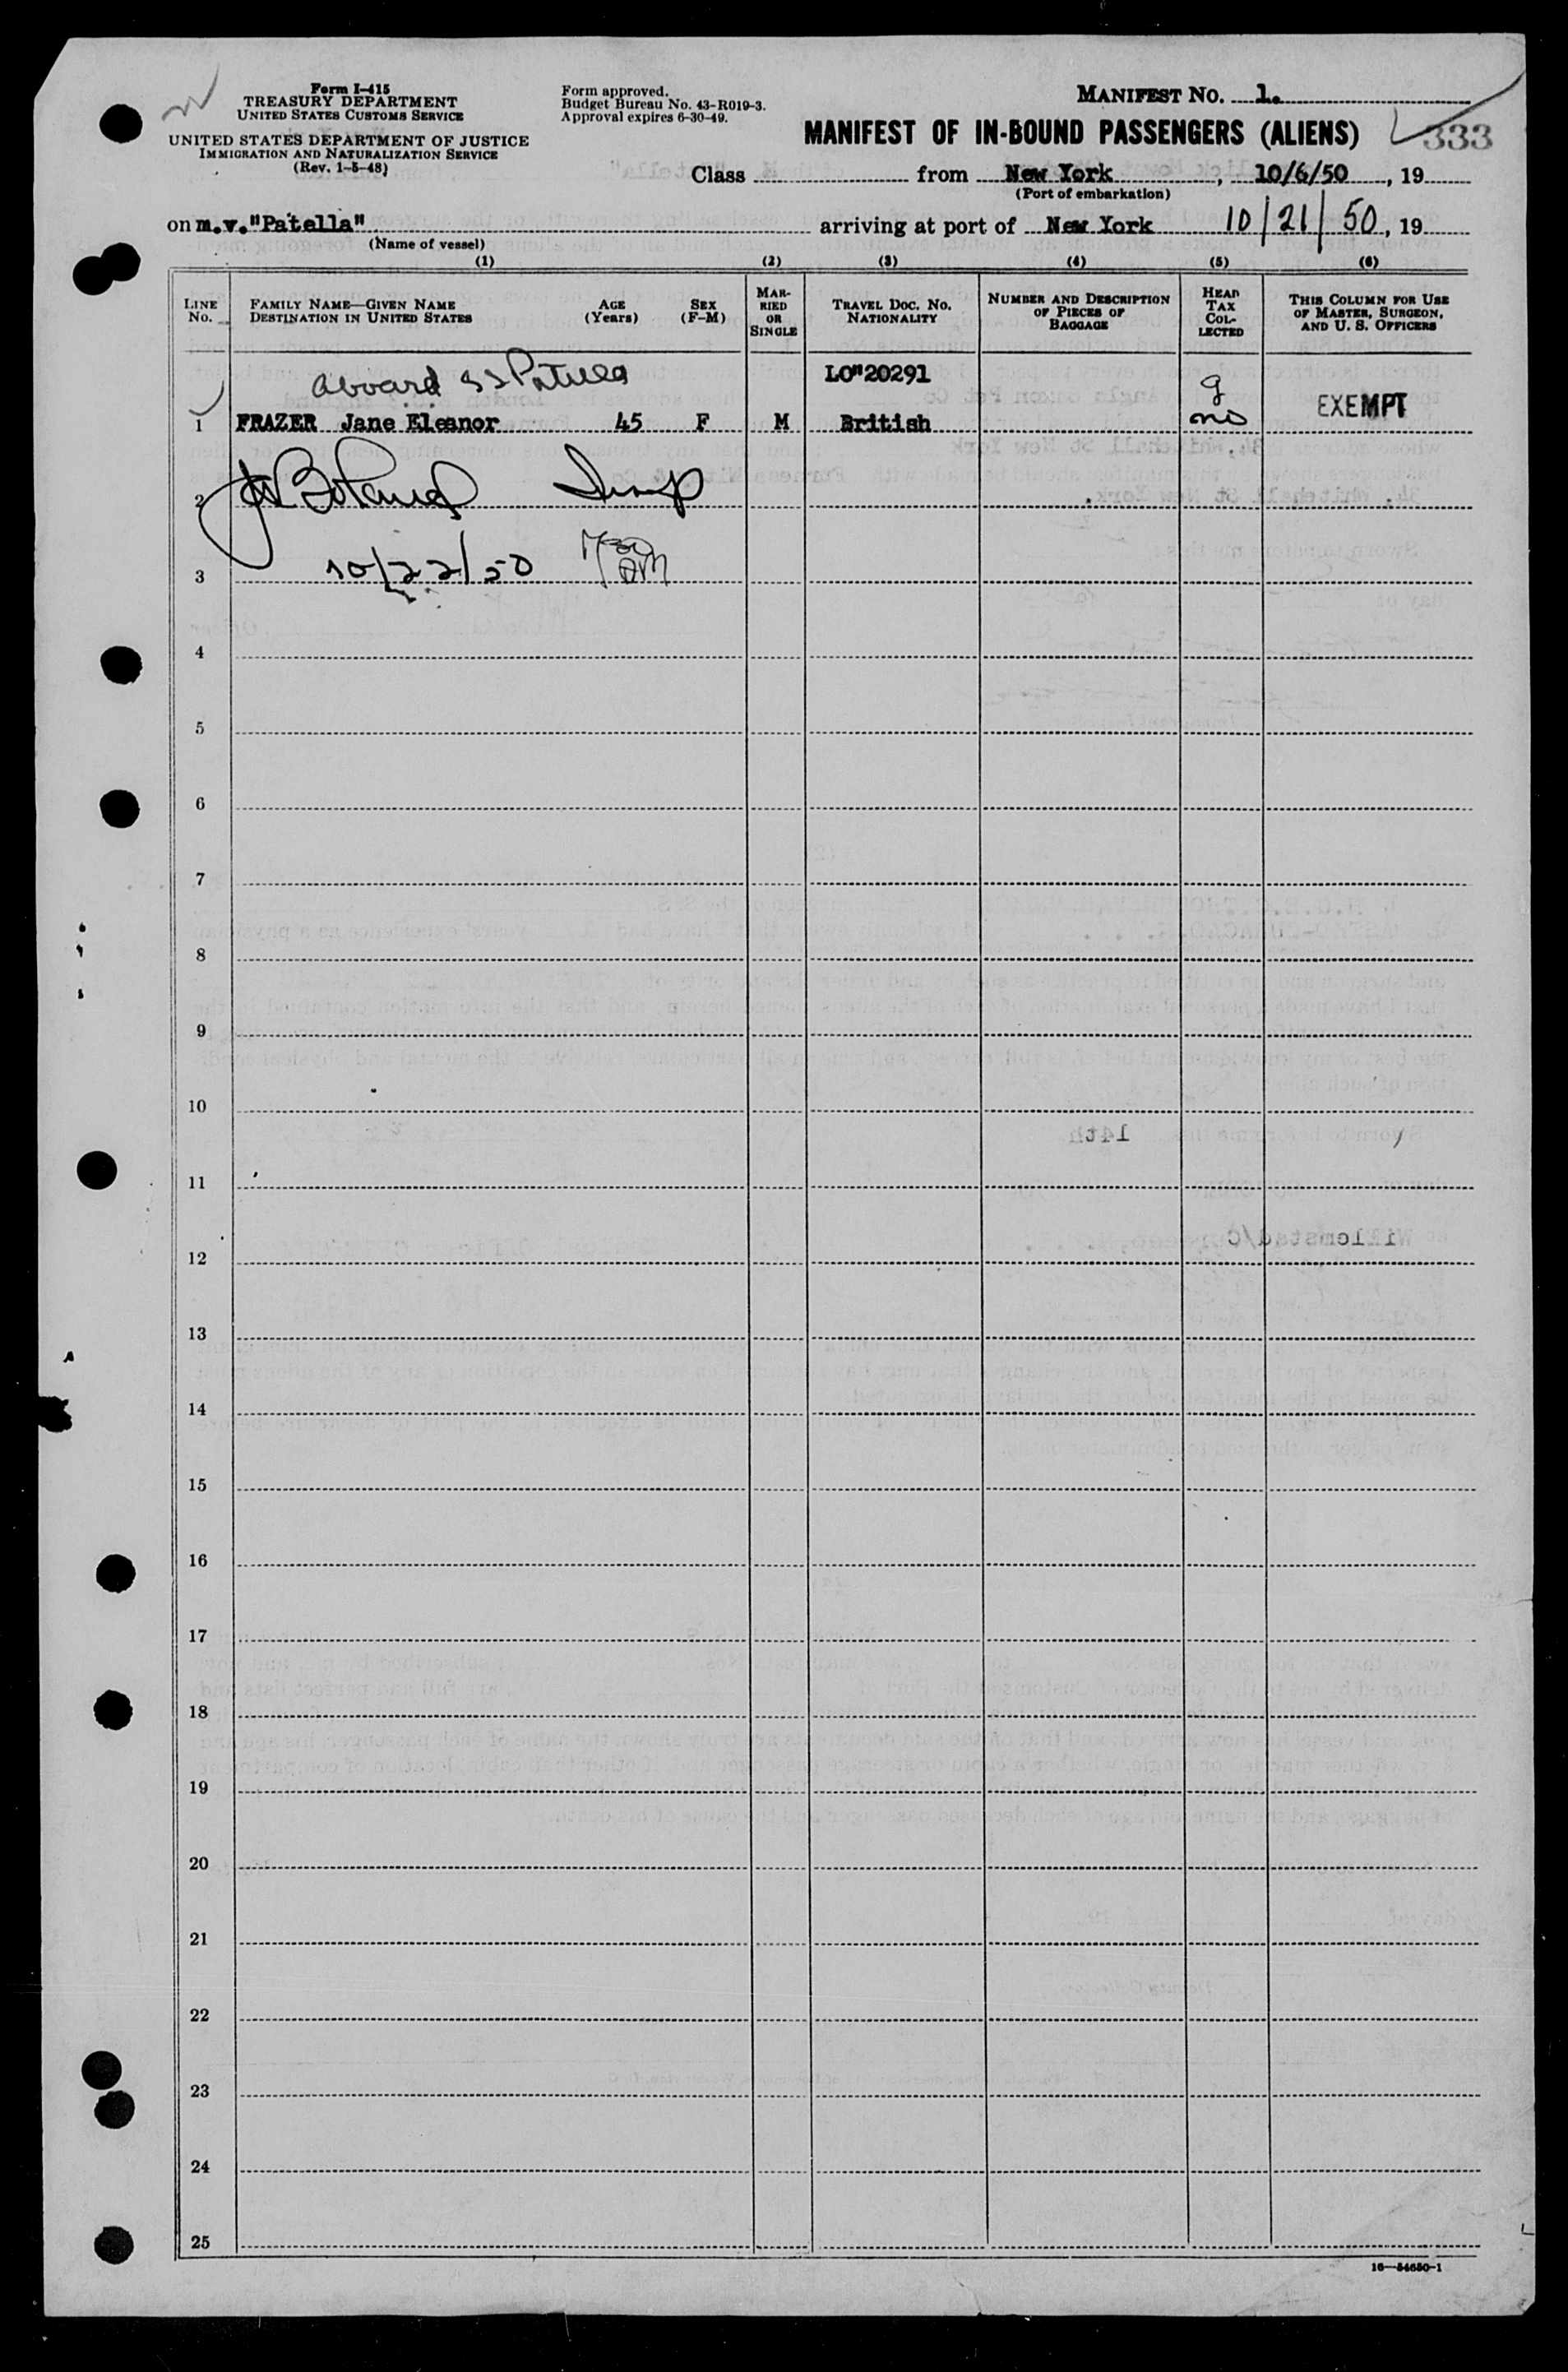 Form I-415
TREASURY DEPARTMENT
UNITED STATES CUSTOMS SERVICE
UNITED STATES DEPARTMENT OF JUSTICE
IMMIGRATION AND NATURALIZATION SERVICE
(Rev. 1-5-48)
Form approved.
Budget Bureau No. 43-R019-3.
Approval expires 6-30-49.
MANIFEST NO. 1.
MANIFEST OF IN-BOUND PASSENGERS (ALIENS)
333
Class from New York, 10/6/50, 19
(Port of embarkation)
on m.v."Patella" arriving at port of New York 10/21/50, 19
(Name of vessel)
(1) (2) (3) (4) (5) (6)
LINE No.
FAMILY NAME—GIVEN NAME
DESTINATION IN UNITED STATES
AGE (Years)
SEX (F-M)
MARRIED OR SINGLE
TRAVEL DOC. NO.
NATIONALITY
NUMBER AND DESCRIPTION OF PIECES OF BAGGAGE
HEAD TAX COLLECTED
THIS COLUMN FOR USE OF MASTER, SURGEON, AND U. S. OFFICERS
aboard SS Patella LO"20291
1 FRAZER Jane Eleanor 45 F M British EXEMPT
2
3 10/22/50
4
5
6
7
8
9
10
11
12
13
14
15
16
17
18
19
20
21
22
23
24
25
16—54650-1